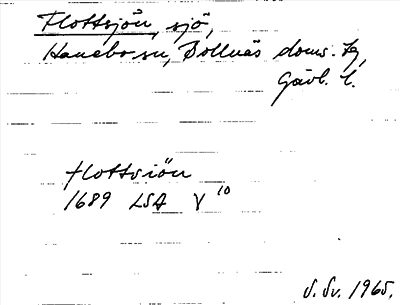 Flottsjön, sjö,
Hanebo sn, Bollnäs doms. tg,
Gävl. l.
flottsiön
1689 LSA V 10
S. Sv. 1965.